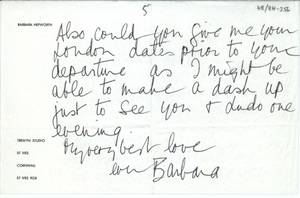 5
BARBARA HEPWORTH
Also could you give me your
London dates prior to your
departure as I might be
able to make a dash up
just to see you & dudo one
evening.
My very best love
ever Barbara
TREWYN STUDIO
ST IVES
CORNWALL